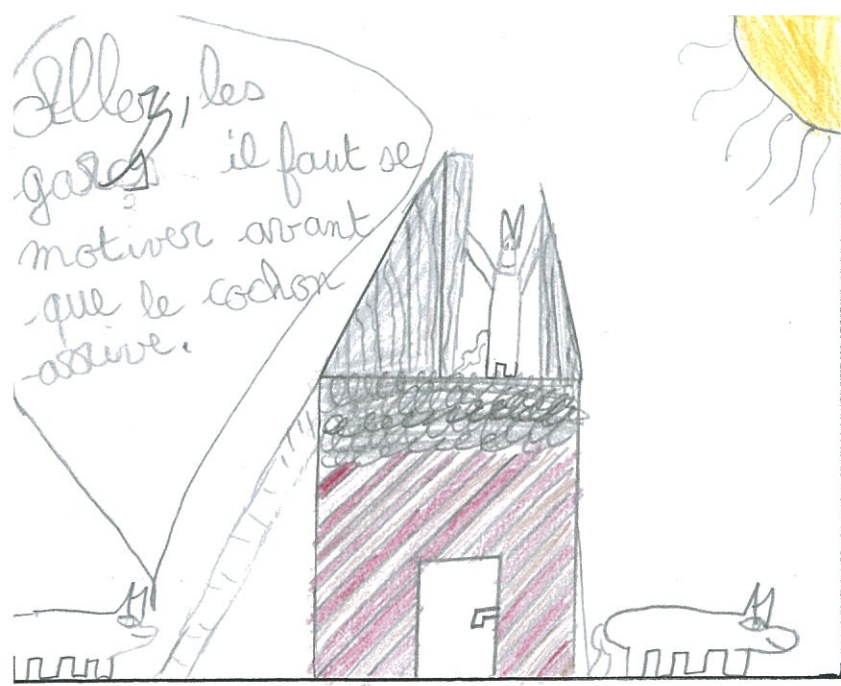 Allez, les
garçs il faut se
motiver avant
que le cochon
arrive.